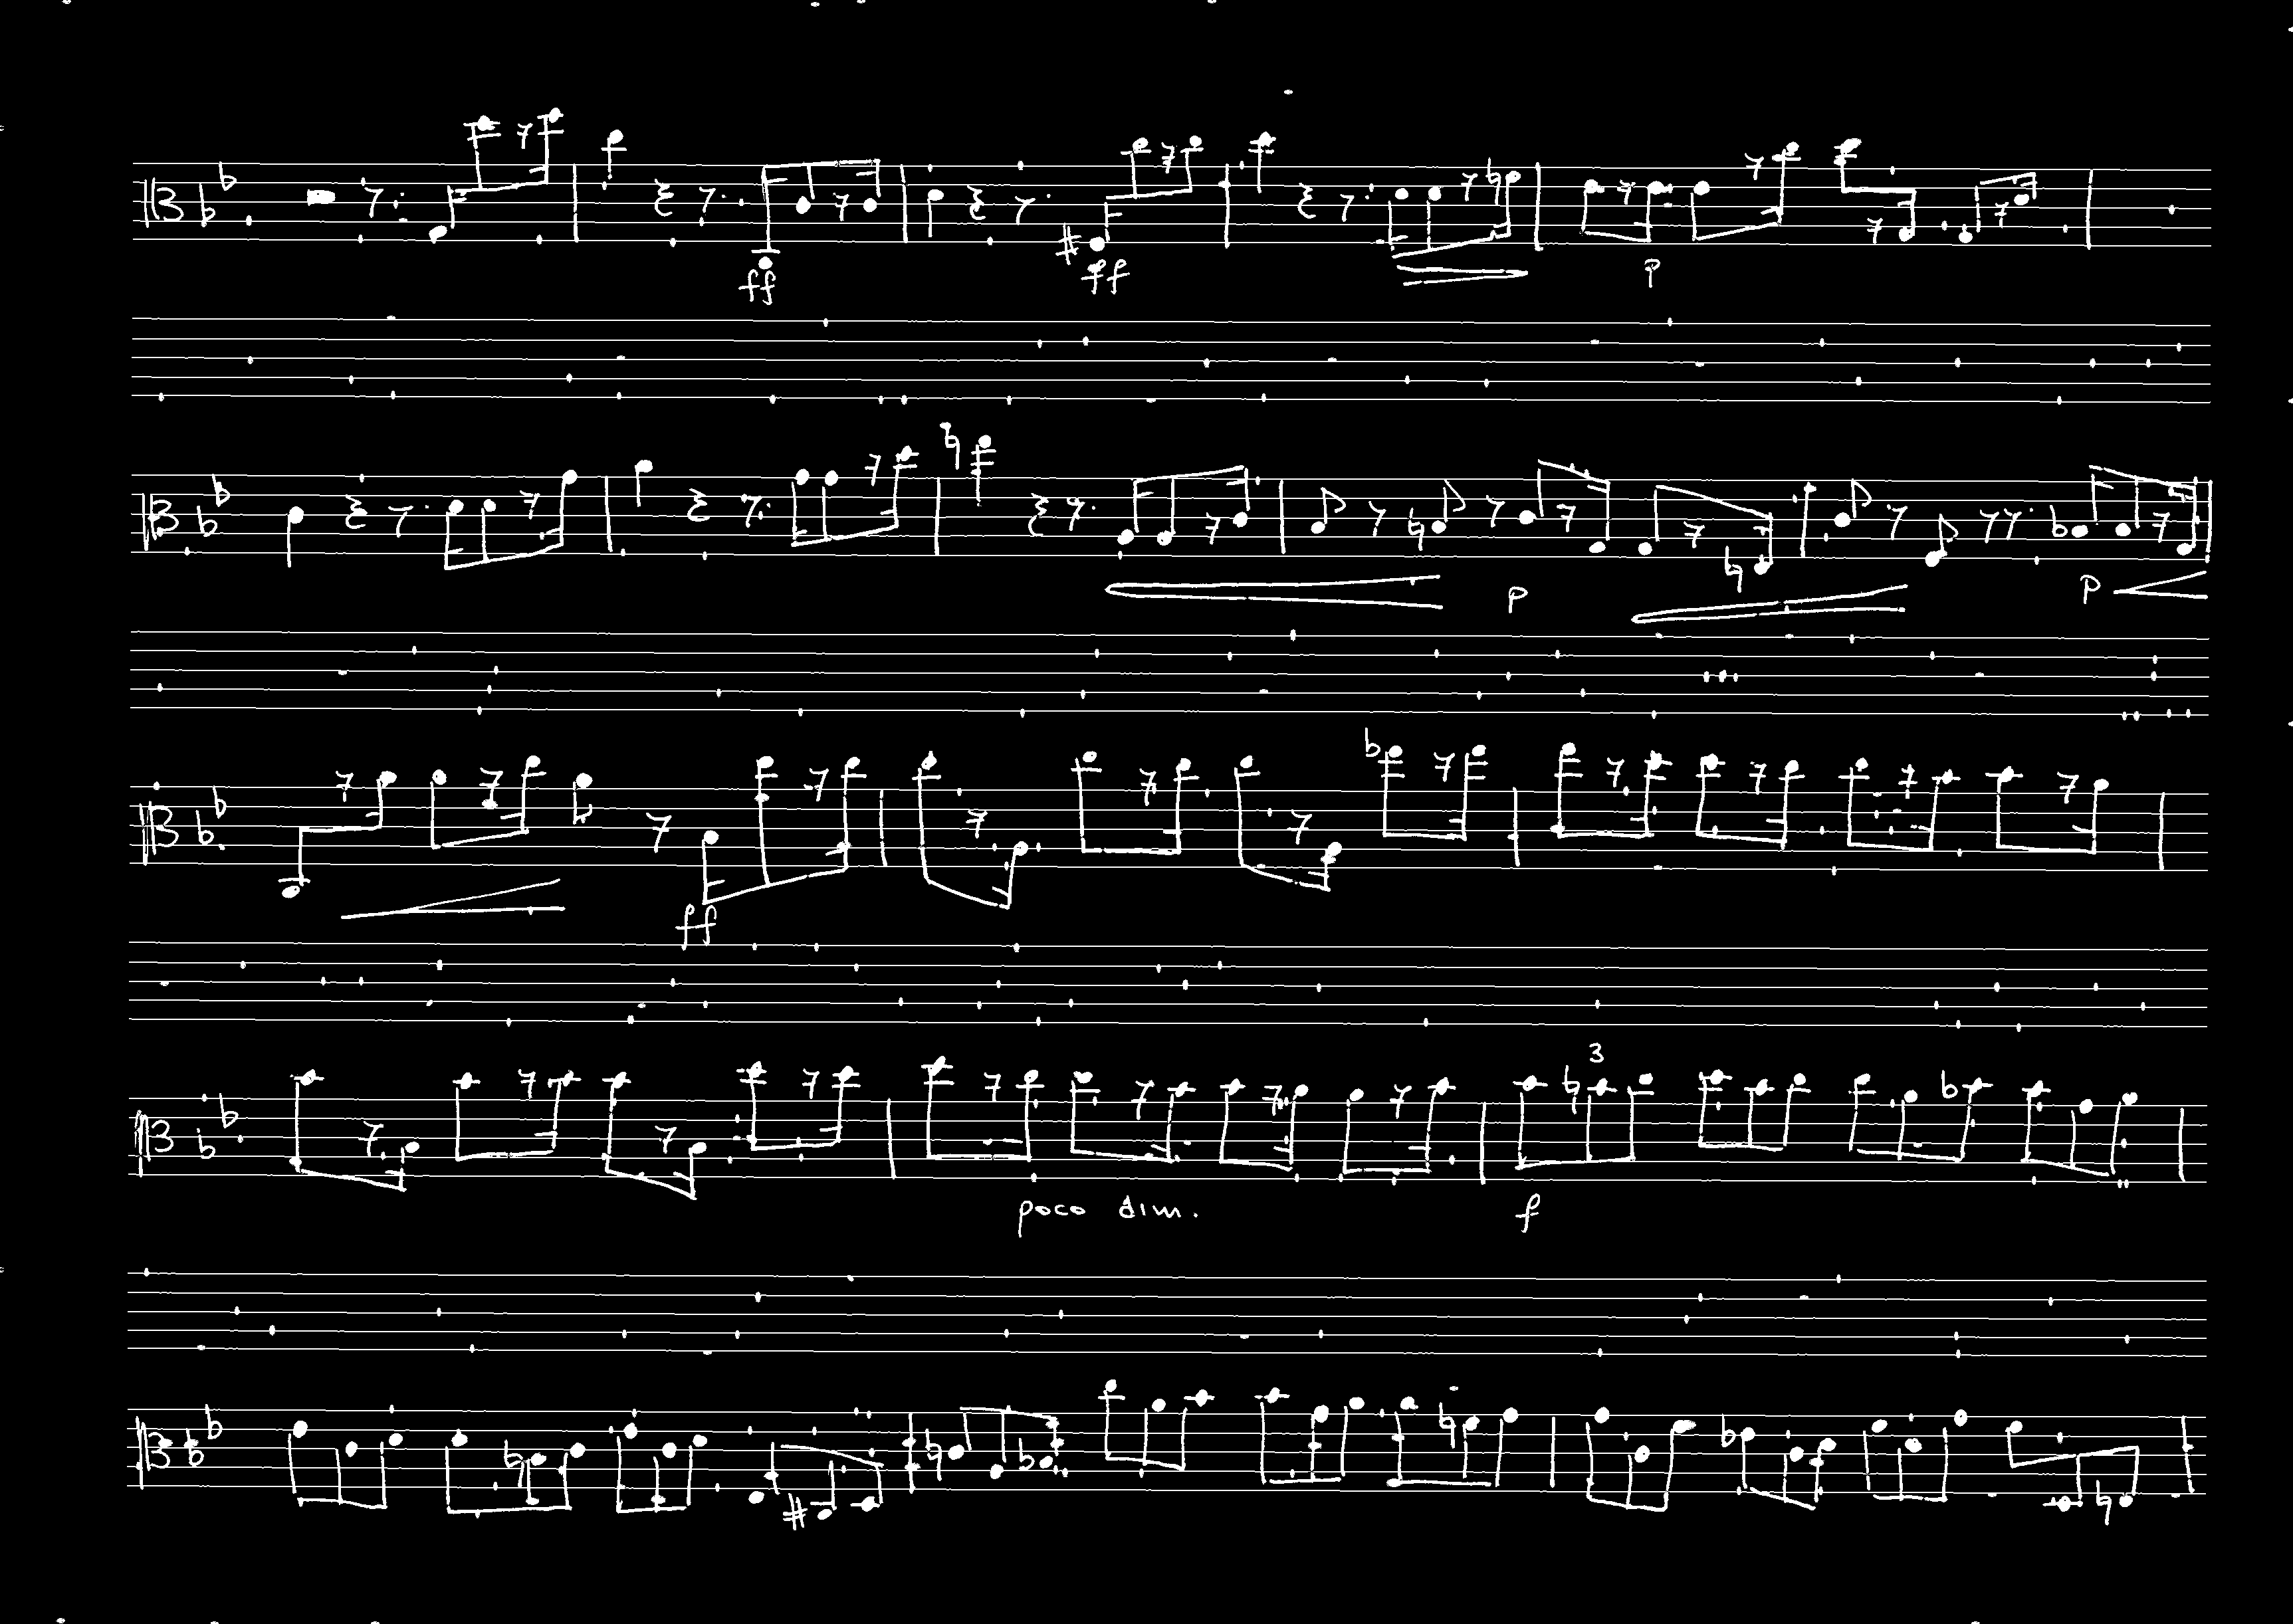 ff ff p
p p
ff
3
poco dim. f